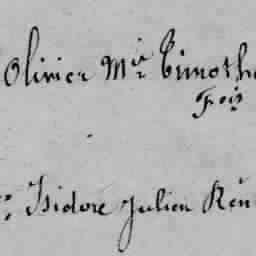 Olivier Mie Timothé
Fois
Isidore Julien Ren